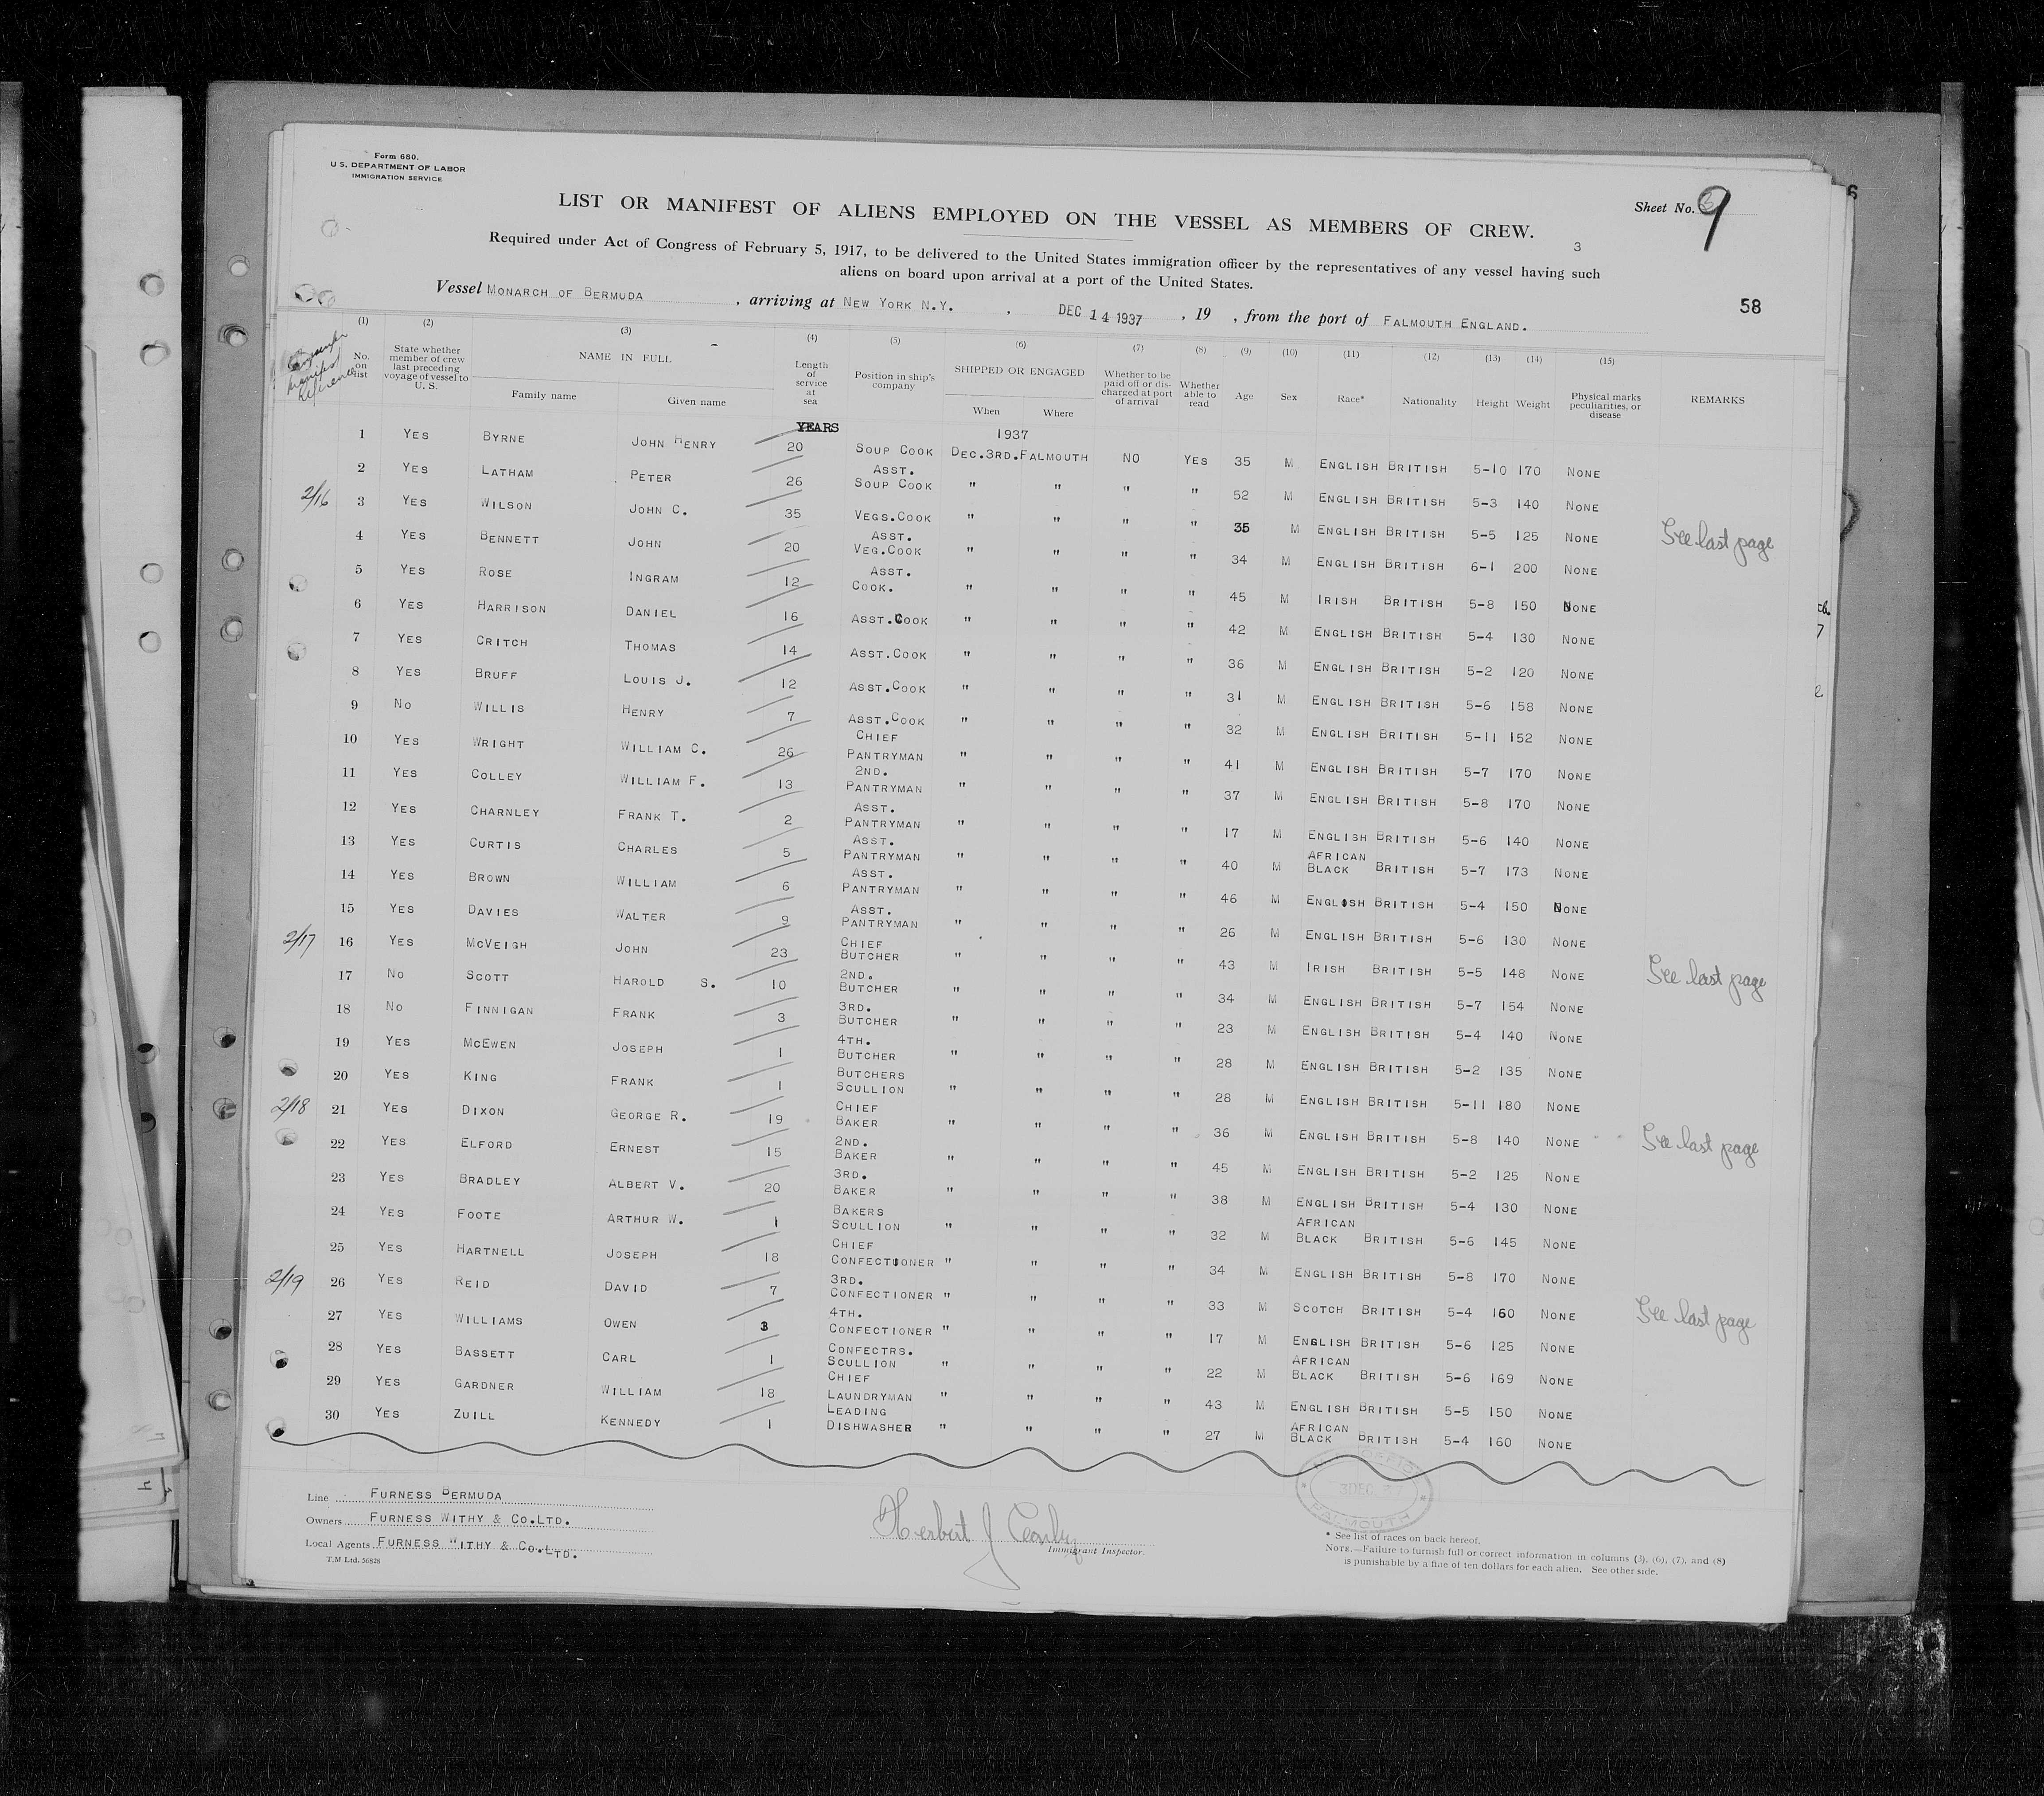 Form 680.
U.S. DEPARTMENT OF LABOR
IMMIGRATION SERVICE
Sheet No. 9
LIST OR MANIFEST OF ALIENS EMPLOYED ON THE VESSEL AS MEMBERS OF CREW.
3
Required under Act of Congress of February 5, 1917, to be delivered to the United States immigration officer by the representatives of any vessel having such
aliens on board upon arrival at a port of the United States.
58
Vessel MONARCH OF BERMUDA, arriving at NEW YORK N.Y., DEC 14 1937, 19 , from the port of FALMOUTH ENGLAND.
(1) (2) (3) (4) (5) (6) (7) (8) (9) (10) (11) (12) (13) (14) (15)
manifest Reference No. on list State whether member of crew last preceding voyage of vessel to U. S. NAME IN FULL Family name Given name Length of service at sea Position in ship's company SHIPPED OR ENGAGED When Where Whether to be paid off or discharged at port of arrival Whether able to read Age Sex Race* Nationality Height Weight Physical marks peculiarities, or disease REMARKS
YEARS 1937
1 YES BYRNE JOHN HENRY 20 SOUP COOK DEC.3RD. FALMOUTH NO YES 35 M ENGLISH BRITISH 5-10 170 NONE
2 YES LATHAM PETER 26 ASST. SOUP COOK " " " " 52 M ENGLISH BRITISH 5-3 140 NONE
2/16 3 YES WILSON JOHN C. 35 VEGS.COOK " " " " 35 M ENGLISH BRITISH 5-5 125 NONE See last page
4 YES BENNETT JOHN 20 ASST. VEG.COOK " " " " 34 M ENGLISH BRITISH 6-1 200 NONE
5 YES ROSE INGRAM 12 ASST. COOK. " " " " 45 M IRISH BRITISH 5-8 150 NONE
6 YES HARRISON DANIEL 16 ASST.COOK " " " " 42 M ENGLISH BRITISH 5-4 130 NONE
7 YES CRITCH THOMAS 14 ASST.COOK " " " " 36 M ENGLISH BRITISH 5-2 120 NONE
8 YES BRUFF LOUIS J. 12 ASST.COOK " " " " 31 M ENGLISH BRITISH 5-6 158 NONE
9 NO WILLIS HENRY 7 ASST.COOK " " " " 32 M ENGLISH BRITISH 5-11 152 NONE
10 YES WRIGHT WILLIAM C. 26 CHIEF PANTRYMAN " " " " 41 M ENGLISH BRITISH 5-7 170 NONE
11 YES COLLEY WILLIAM F. 13 2ND. PANTRYMAN " " " " 37 M ENGLISH BRITISH 5-8 170 NONE
12 YES CHARNLEY FRANK T. 2 ASST. PANTRYMAN " " " " 17 M ENGLISH BRITISH 5-6 140 NONE
13 YES CURTIS CHARLES 5 ASST. PANTRYMAN " " " " 40 M AFRICAN BLACK BRITISH 5-7 173 NONE
14 YES BROWN WILLIAM 6 ASST. PANTRYMAN " " " " 46 M ENGLISH BRITISH 5-4 150 NONE
15 YES DAVIES WALTER 9 ASST. PANTRYMAN " " " " 26 M ENGLISH BRITISH 5-6 130 NONE
2/17 16 YES MCVEIGH JOHN 23 CHIEF BUTCHER " " " " 43 M IRISH BRITISH 5-5 148 NONE See last page
17 NO SCOTT HAROLD S. 10 2ND. BUTCHER " " " " 34 M ENGLISH BRITISH 5-7 154 NONE
18 NO FINNIGAN FRANK 3 3RD. BUTCHER " " " " 23 M ENGLISH BRITISH 5-4 140 NONE
19 YES MCEWEN JOSEPH 1 4TH. BUTCHER " " " " 28 M ENGLISH BRITISH 5-2 135 NONE
20 YES KING FRANK 1 BUTCHERS SCULLION " " " " 28 M ENGLISH BRITISH 5-11 180 NONE
2/18 21 YES DIXON GEORGE R. 19 CHIEF BAKER " " " " 36 M ENGLISH BRITISH 5-8 140 NONE See last page
22 YES ELFORD ERNEST 15 2ND. BAKER " " " " 45 M ENGLISH BRITISH 5-2 125 NONE
23 YES BRADLEY ALBERT V. 20 3RD. BAKER " " " " 38 M ENGLISH BRITISH 5-4 130 NONE
24 YES FOOTE ARTHUR W. 1 BAKERS SCULLION " " " " 32 M AFRICAN BLACK BRITISH 5-6 145 NONE
25 YES HARTNELL JOSEPH 18 CHIEF CONFECTIONER " " " " 34 M ENGLISH BRITISH 5-8 170 NONE
2/19 26 YES REID DAVID 7 3RD. CONFECTIONER " " " " 33 M SCOTCH BRITISH 5-4 160 NONE See last page
27 YES WILLIAMS OWEN 3 4TH. CONFECTIONER " " " " 17 M ENGLISH BRITISH 5-6 125 NONE
28 YES BASSETT CARL 1 CONFECTRS. SCULLION " " " " 22 M AFRICAN BLACK BRITISH 5-6 169 NONE
29 YES GARDNER WILLIAM 18 CHIEF LAUNDRYMAN " " " " 43 M ENGLISH BRITISH 5-5 150 NONE
30 YES ZUILL KENNEDY 1 LEADING DISHWASHER " " " " 27 M AFRICAN BLACK BRITISH 5-4 160 NONE
Line FURNESS BERMUDA
Owners FURNESS WITHY & CO.LTD.
Local Agents FURNESS WITHY & CO.LTD.
T.M Ltd. 56828
Herbert J
Immigrant Inspector.
3DEC.37
FALMOUTH
* See list of races on back hereof.
NOTE.—Failure to furnish full or correct information in columns (3), (6), (7), and (8)
is punishable by a fine of ten dollars for each alien. See other side.